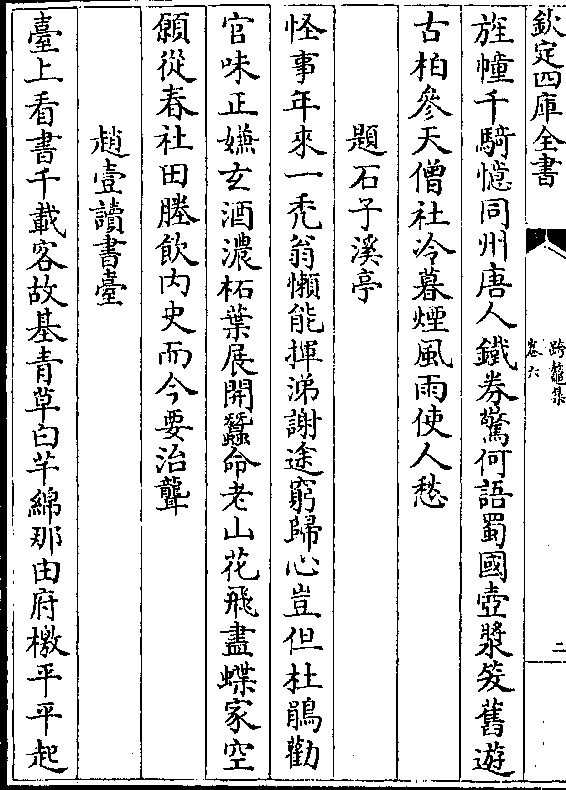 欽定四庫全書
跨鼇集
卷六
二
旌幢千騎憶同州唐人鐵券驚何語蜀國壺漿笑舊遊
古柏參天僧社冷暮煙風雨使人愁
題石子溪亭
怪事年來一禿翁懶能揮涕謝途窮歸心豈但杜鵑勸
官味正嫌玄酒濃柘葉展開蠶命老山花飛盡蝶家空
願從春社田塍飲內史而今要治聾
趙壹讀書臺
臺上看書千載客故基青草白芊綿那由府檄平平起